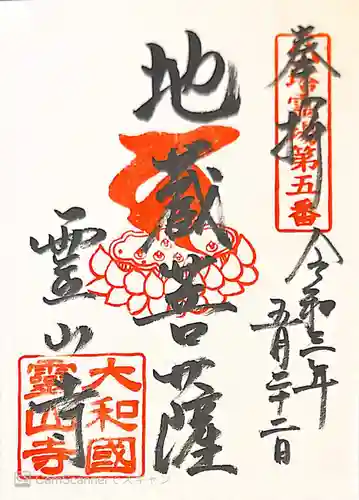 奉拝
霊場第五番
令和三年
五月二十二日
地蔵菩薩
霊山寺
大和國
霊山寺
CamScannerでスキャン